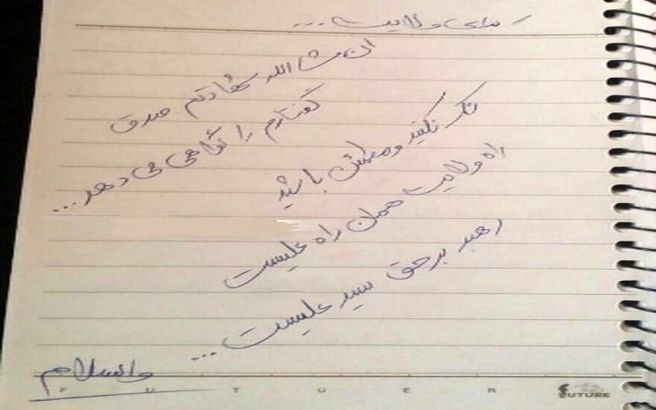 برای ولایت ...
ان شاالله شهادتم صدق
گفتارم را گواهی می دهد ...
شک نکنید و مطمئن باشید
راه ولایت همان راه علیست
رهبر برحق سید علیست ...
والسلام
F U T U E R
FUTURE